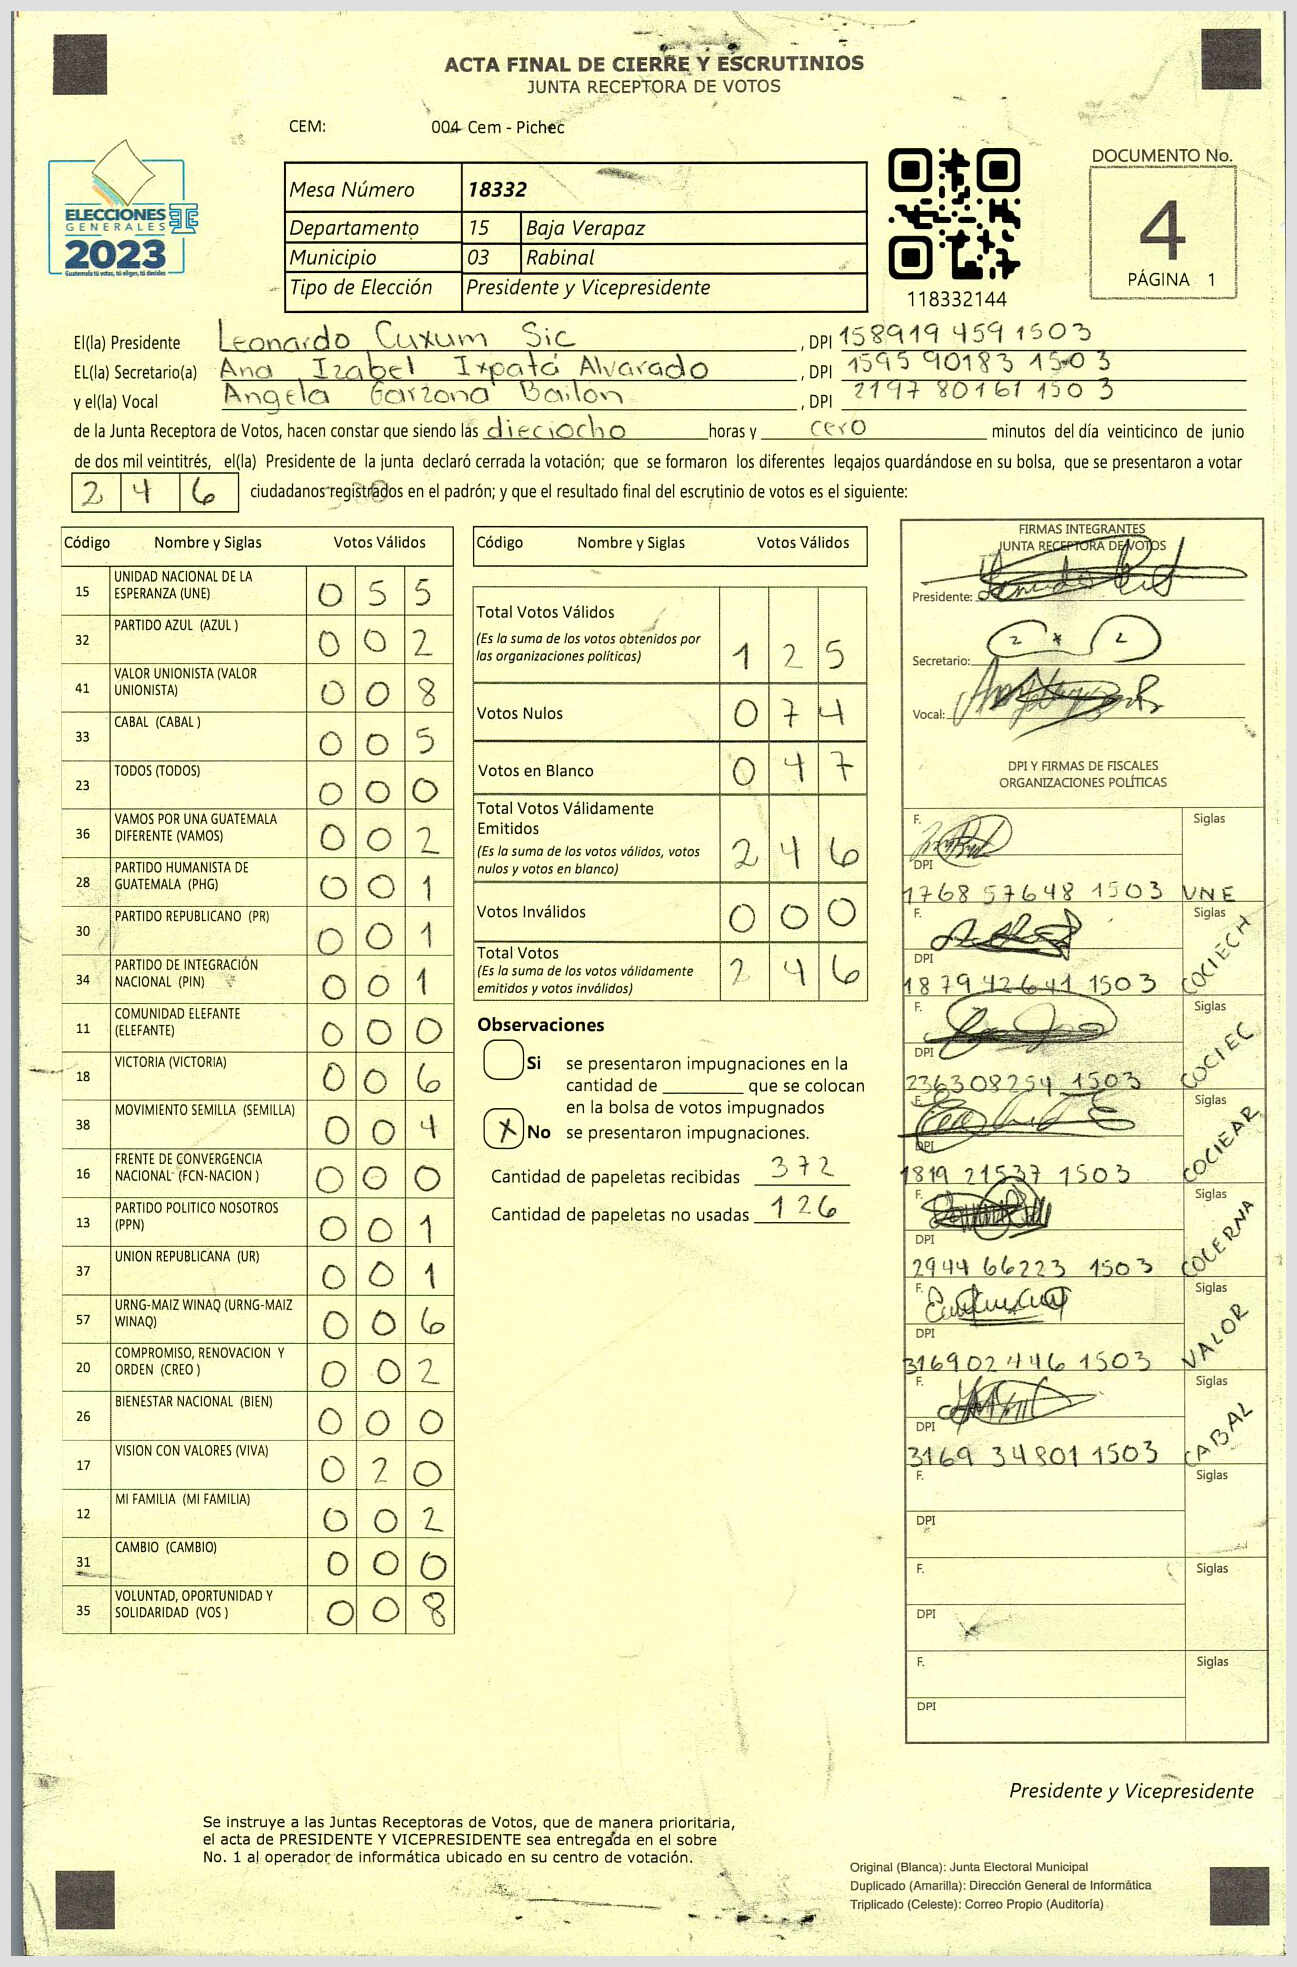 ACTA FINAL DE CIERRE Y ESCRUTINIOS
JUNTA RECEPTORA DE VOTOS
CEM: 004 Cem - Pichec
ELECCIONES
GENERALES
2023
Guatemala tú votas, tú eliges, tú decides
Mesa Número 18332
Departamento 15 Baja Verapaz
Municipio 03 Rabinal
Tipo de Elección Presidente y Vicepresidente
118332144
DOCUMENTO No.
4
PÁGINA 1
El(la) Presidente Leonardo Cuxum Sic, DPI 158919 459 1503
EL(la) Secretario(a) Ana Izabel Ixpatá Alvarado, DPI 1595 90183 1503
y el(la) Vocal Angela Garzona Bailon, DPI 2197 80161 1503
de la Junta Receptora de Votos, hacen constar que siendo las dieciocho horas y cero minutos del día veinticinco de junio
de dos mil veintitrés, el(la) Presidente de la junta declaró cerrada la votación; que se formaron los diferentes legajos guardándose en su bolsa, que se presentaron a votar
2 4 6 ciudadanos registrados en el padrón; y que el resultado final del escrutinio de votos es el siguiente:
Código Nombre y Siglas Votos Válidos
15 UNIDAD NACIONAL DE LA ESPERANZA (UNE) 0 5 5
32 PARTIDO AZUL (AZUL ) 0 0 2
41 VALOR UNIONISTA (VALOR UNIONISTA) 0 0 8
33 CABAL (CABAL ) 0 0 5
23 TODOS (TODOS) 0 0 0
36 VAMOS POR UNA GUATEMALA DIFERENTE (VAMOS) 0 0 2
28 PARTIDO HUMANISTA DE GUATEMALA (PHG) 0 0 1
30 PARTIDO REPUBLICANO (PR) 0 0 1
34 PARTIDO DE INTEGRACIÓN NACIONAL (PIN) 0 0 1
11 COMUNIDAD ELEFANTE (ELEFANTE) 0 0 0
18 VICTORIA (VICTORIA) 0 0 6
38 MOVIMIENTO SEMILLA (SEMILLA) 0 0 4
16 FRENTE DE CONVERGENCIA NACIONAL (FCN-NACION ) 0 0 0
13 PARTIDO POLITICO NOSOTROS (PPN) 0 0 1
37 UNION REPUBLICANA (UR) 0 0 1
57 URNG-MAIZ WINAQ (URNG-MAIZ WINAQ) 0 0 6
20 COMPROMISO, RENOVACION Y ORDEN (CREO ) 0 0 2
26 BIENESTAR NACIONAL (BIEN) 0 0 0
17 VISION CON VALORES (VIVA) 0 2 0
12 MI FAMILIA (MI FAMILIA) 0 0 2
31 CAMBIO (CAMBIO) 0 0 0
35 VOLUNTAD, OPORTUNIDAD Y SOLIDARIDAD (VOS ) 0 0 8
Código Nombre y Siglas Votos Válidos
Total Votos Válidos
(Es la suma de los votos obtenidos por las organizaciones políticas) 1 2 5
Votos Nulos 0 7 4
Votos en Blanco 0 4 7
Total Votos Válidamente Emitidos
(Es la suma de los votos válidos, votos nulos y votos en blanco) 2 4 6
Votos Inválidos 0 0 0
Total Votos
(Es la suma de los votos válidamente emitidos y votos inválidos) 2 4 6
Observaciones
Si se presentaron impugnaciones en la
cantidad de ________ que se colocan
en la bolsa de votos impugnados
X No se presentaron impugnaciones.
Cantidad de papeletas recibidas 372
Cantidad de papeletas no usadas 126
FIRMAS INTEGRANTES
JUNTA RECEPTORA DE VOTOS
Presidente:
Secretario:
Vocal:
DPI Y FIRMAS DE FISCALES
ORGANIZACIONES POLÍTICAS
F. Siglas
DPI
1768 57648 1503 UNE
F. Siglas
DPI
1879 42641 1503 COCIECH
F. Siglas
DPI
236308254 1503 COCIEC
F. Siglas
DPI
1819 21537 1503 COCIEAR
F. Siglas
DPI
2944 66223 1503 COCERNA
F. Siglas
DPI
316902446 1503 VALOR
F. Siglas
DPI
3169 34801 1503 CABAL
F. Siglas
DPI
F. Siglas
DPI
F. Siglas
DPI
Presidente y Vicepresidente
Se instruye a las Juntas Receptoras de Votos, que de manera prioritaria,
el acta de PRESIDENTE Y VICEPRESIDENTE sea entregada en el sobre
No. 1 al operador de informática ubicado en su centro de votación.
Original (Blanca): Junta Electoral Municipal
Duplicado (Amarilla): Dirección General de Informática
Triplicado (Celeste): Correo Propio (Auditoría)